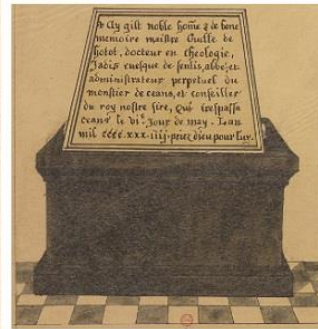 Cy gist noble home & de bone
memoire maistre Guille de
hotot, docteur en theologie,
Jadis euesque de senlis, abbe, et
administrateur perpetuel du
monstier de ceans, et conseiller
du roy nostre sire, Qui trespassa
ceans le vi.e Jour de may. Lan
mil cccc.xxx.iiij. priez dieu pour luy.